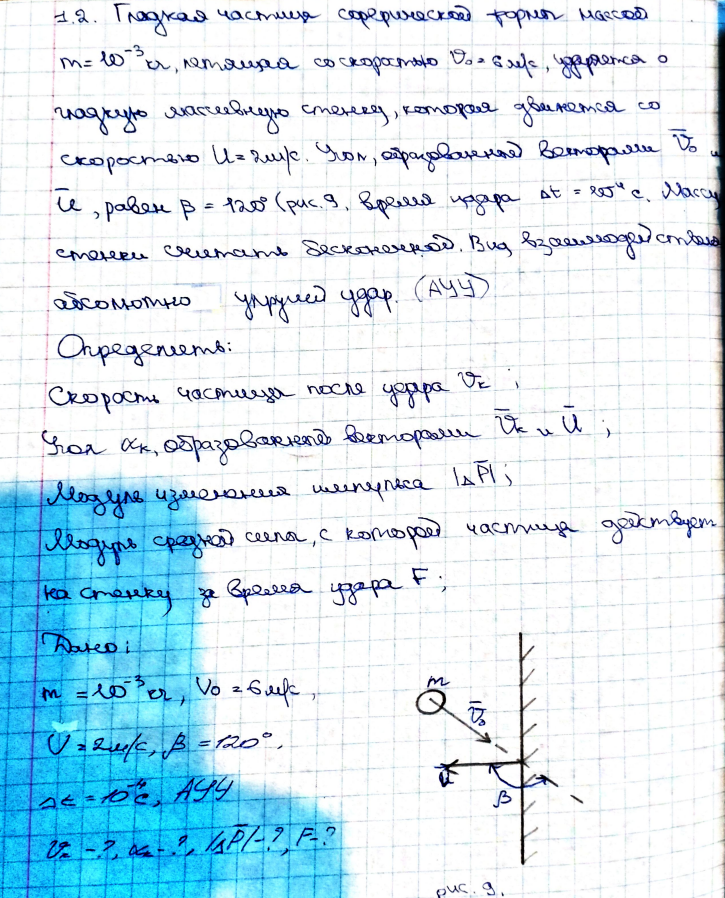 1.2. Гладкая частица сферической формы массой
m = 10⁻³ кг, летящая со скоростью V₀ = 6 м/с, ударяется о
гладкую массивную стенку, которая движется со
скоростью U = 2 м/с. Угол, образованный векторами V̄₀ и
ū, равен β = 120° (рис. 9. Время удара Δt = 10⁻⁴ с. Массу
стенки считать бесконечной. Вид взаимодействия
абсолютно упругий удар. (АУУ)
Определить:
Скорость частицы после удара Vк ;
Угол αк, образованный векторами V̄к и Ū ;
Модуль изменения импульса |ΔP̄| ;
Модуль средней силы, с которой частица действует
на стенку за время удара F ;
Дано:
m = 10⁻³ кг, V₀ = 6 м/с,
U = 2 м/с, β = 120°,
Δt = 10⁻⁴ с, АУУ
Vк - ?, αк - ?, |ΔP̄| - ?, F - ?
m
V̄₀
ū
β
рис. 9.